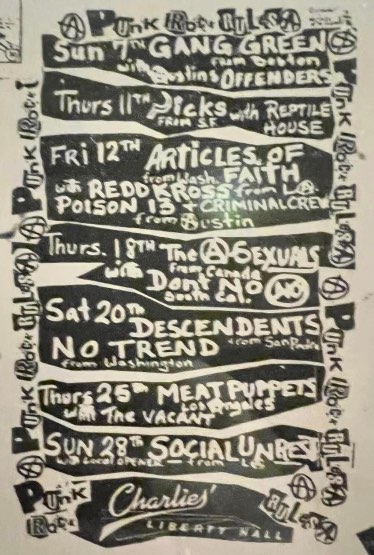 PUNK ROCK RULES
Sun 7TH GANG GREEN
from Boston
with Austins OFFENDERS
Thurs 11TH Dicks with REPTILE
FROM S.F. HOUSE
FRI 12TH ARTICLES OF
from Wash. FAITH
with REDD KROSS from L.A.
POISON 13 + CRIMINAL CREW
from Austin
Thurs. 18TH The A-SEXUALS
from Canada
with Dont NO NO
South Cal.
Sat 20th DESCENDENTS
NO TREND from San Pedro
from Washington
Thurs 25th MEAT PUPPETS
Los Angeles
with The VACANT
SUN 28TH SOCIAL UNREST
with Local OPENER — from
Charlies'
LIBERTY HALL
PUNK ROCK RULES
PUNK ROCK RULES
PUNK ROCK RULES
PUNK ROCK RULES
PUNK ROCK
RULES